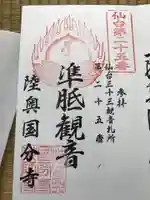 仙台第二十五番
参拝
仙台三十三観音札所
第二十五番
准胝観音
陸奥国分寺